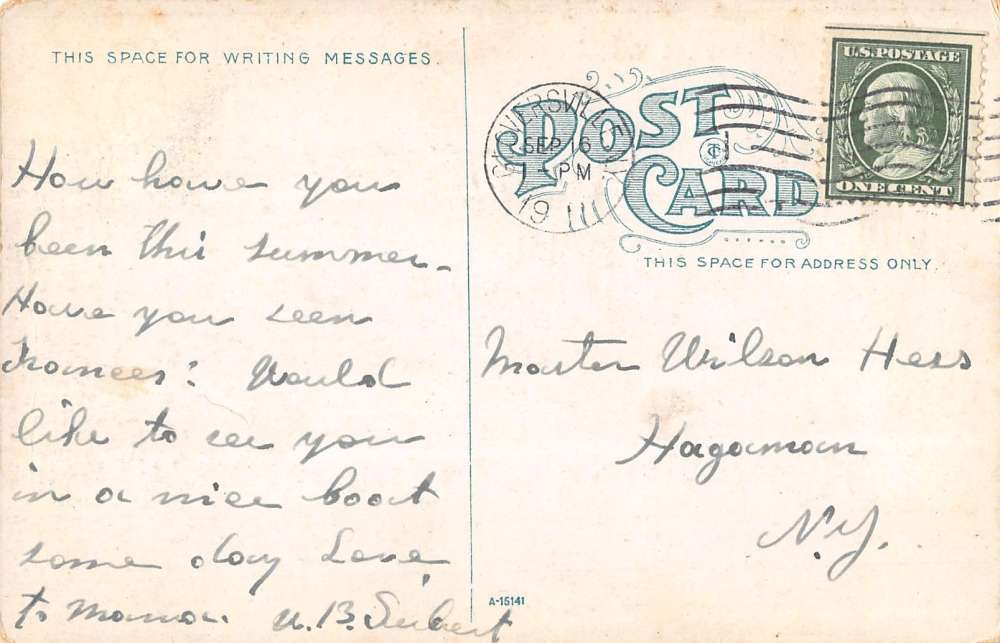 THIS SPACE FOR WRITING MESSAGES.
How have you
been this summer –
Have you seen
Frances? Would
like to see you
in a nice boat
some day Love
to Mama. U.B. Seibert
POST CARD
CT
THIS SPACE FOR ADDRESS ONLY.
GLOVERSVILLE
SEP 16
PM
19
U.S. POSTAGE
ONE CENT
Master Wilson Hess
Hagaman
N.Y.
A-15141